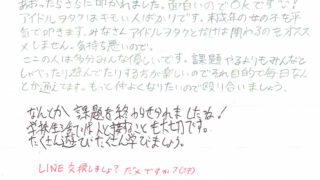 あおったらさらに叩かれました。面白いのでOKです👌!
アイドルヲタクはキモい人ばかりです。未成年の女の子も平
気で叩きます。みなさんアイドルヲタクとだけは関わるのもオスス
メしません。気持ち悪いので。
ここの人は多分みんな優しいです。課題やるよりもみんなと
しゃべったり遊んでたりする方が楽しいのでそれ目的で毎日なん
とか通えてます。もっと仲よくなりたいので絡り合いましょう。
なんとか課題を終わらせられましたね!
学校生活で仲人と接することも大切です。
たくさん遊びたくさん学びましょう。
LINE交換しましょ? だメですか?(汗)